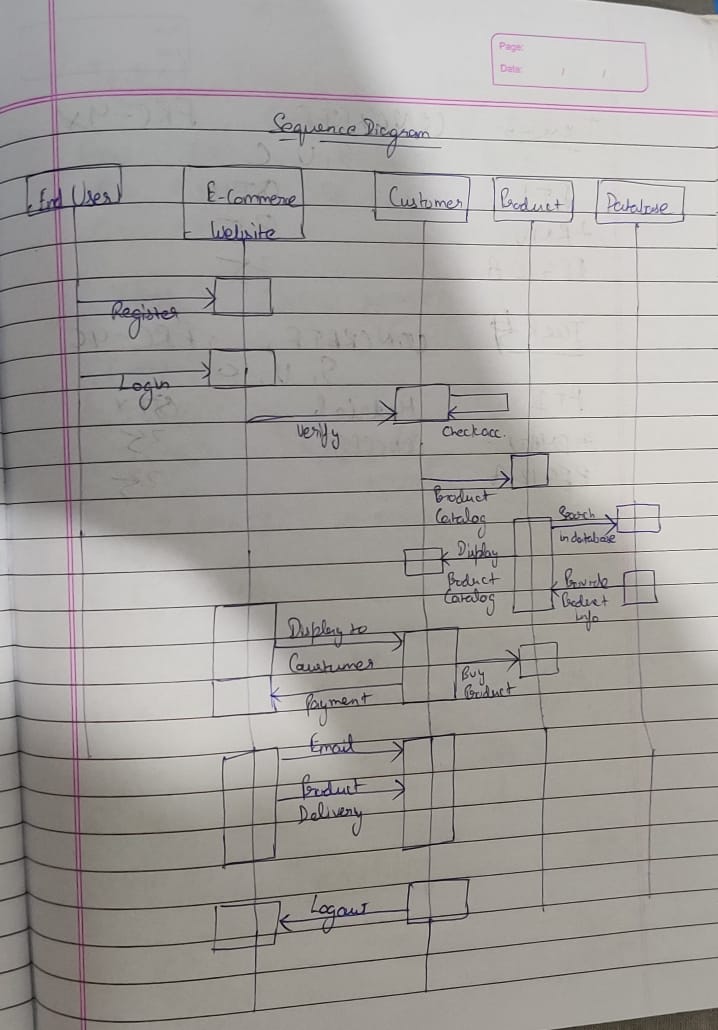 Page:
Date: / /
Sequence Diagram
End User
E-Commerce
Website
Customer
Product
Database
Register
Login
Verify
Check acc.
Product
Catalog
Search
in database
Display
Product
Catalog
Provide
Product
Info
Display to
Coustumer
Payment
Buy
Product
Email
Product
Delivery
Logout